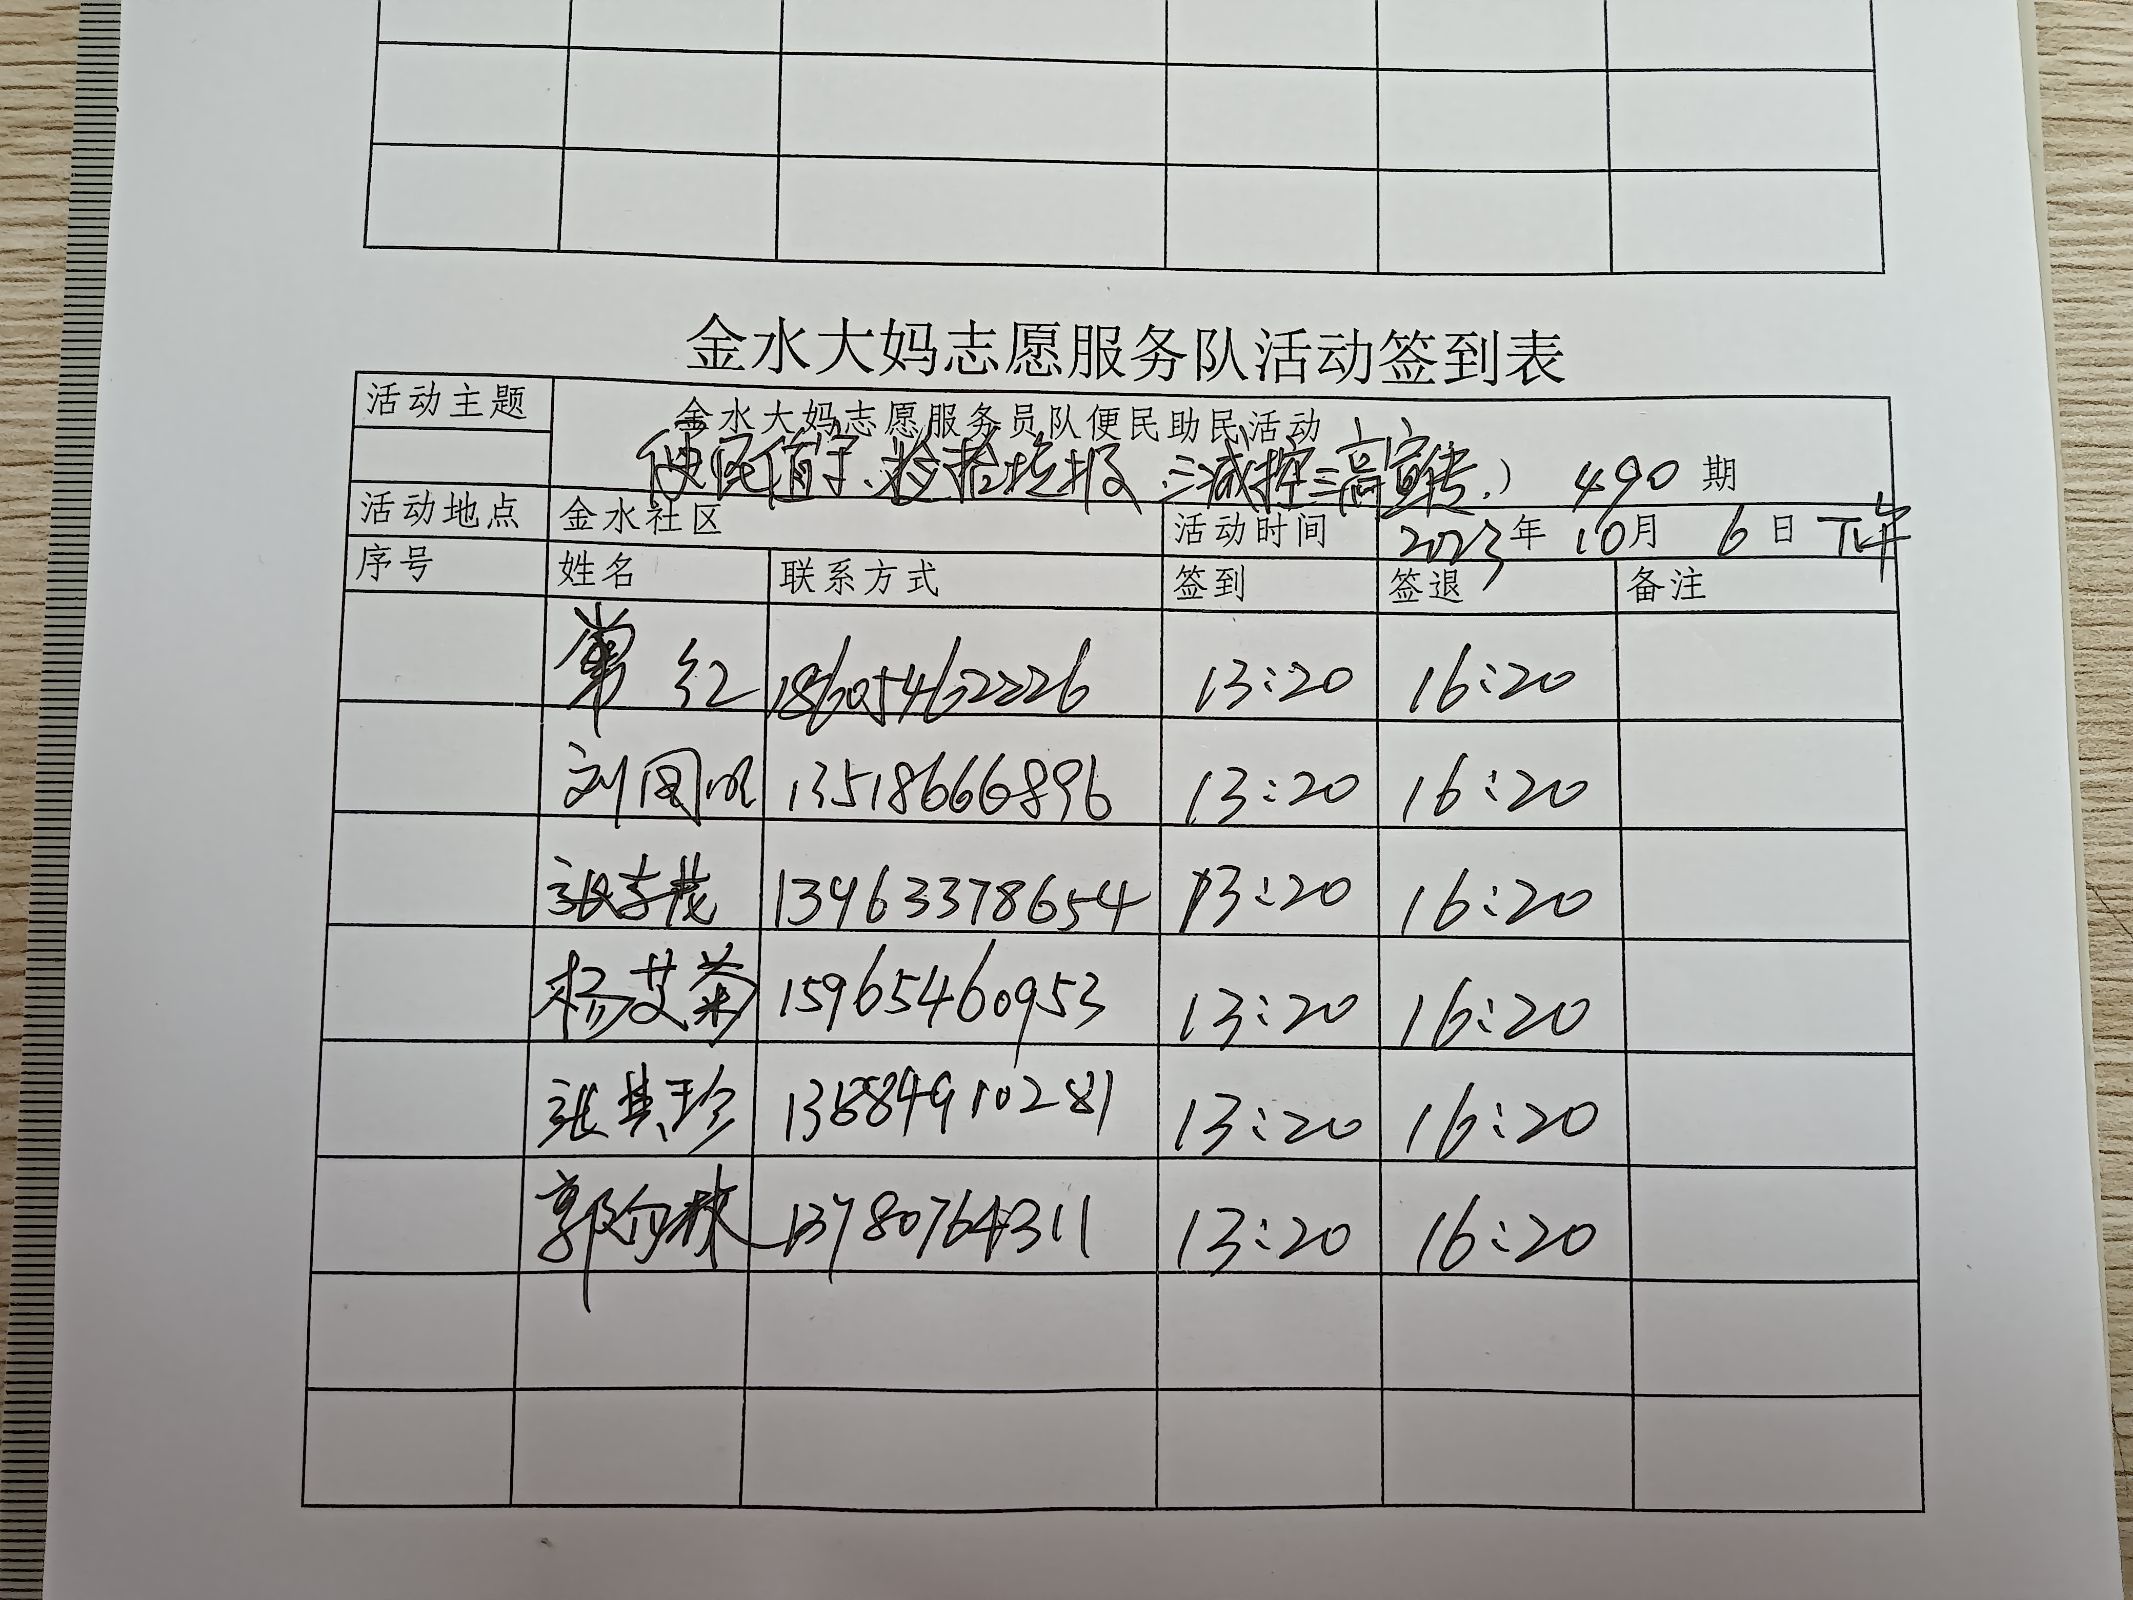 金水大妈志愿服务队活动签到表
活动主题
金水大妈志愿服务员队便民助民活动
便民值守、捡拾垃圾、三减控三高宣传、） 490 期
活动地点 金水社区 活动时间 2023年 10月 6日 下午
序号 姓名 联系方式 签到 签退 备注
红 18605462226 13:20 16:20
刘国 13518666896 13:20 16:20
张 茂 13963378654 13:20 16:20
杨艾菊 15965460953 13:20 16:20
张其珍 13884910281 13:20 16:20
郭 13780764311 13:20 16:20